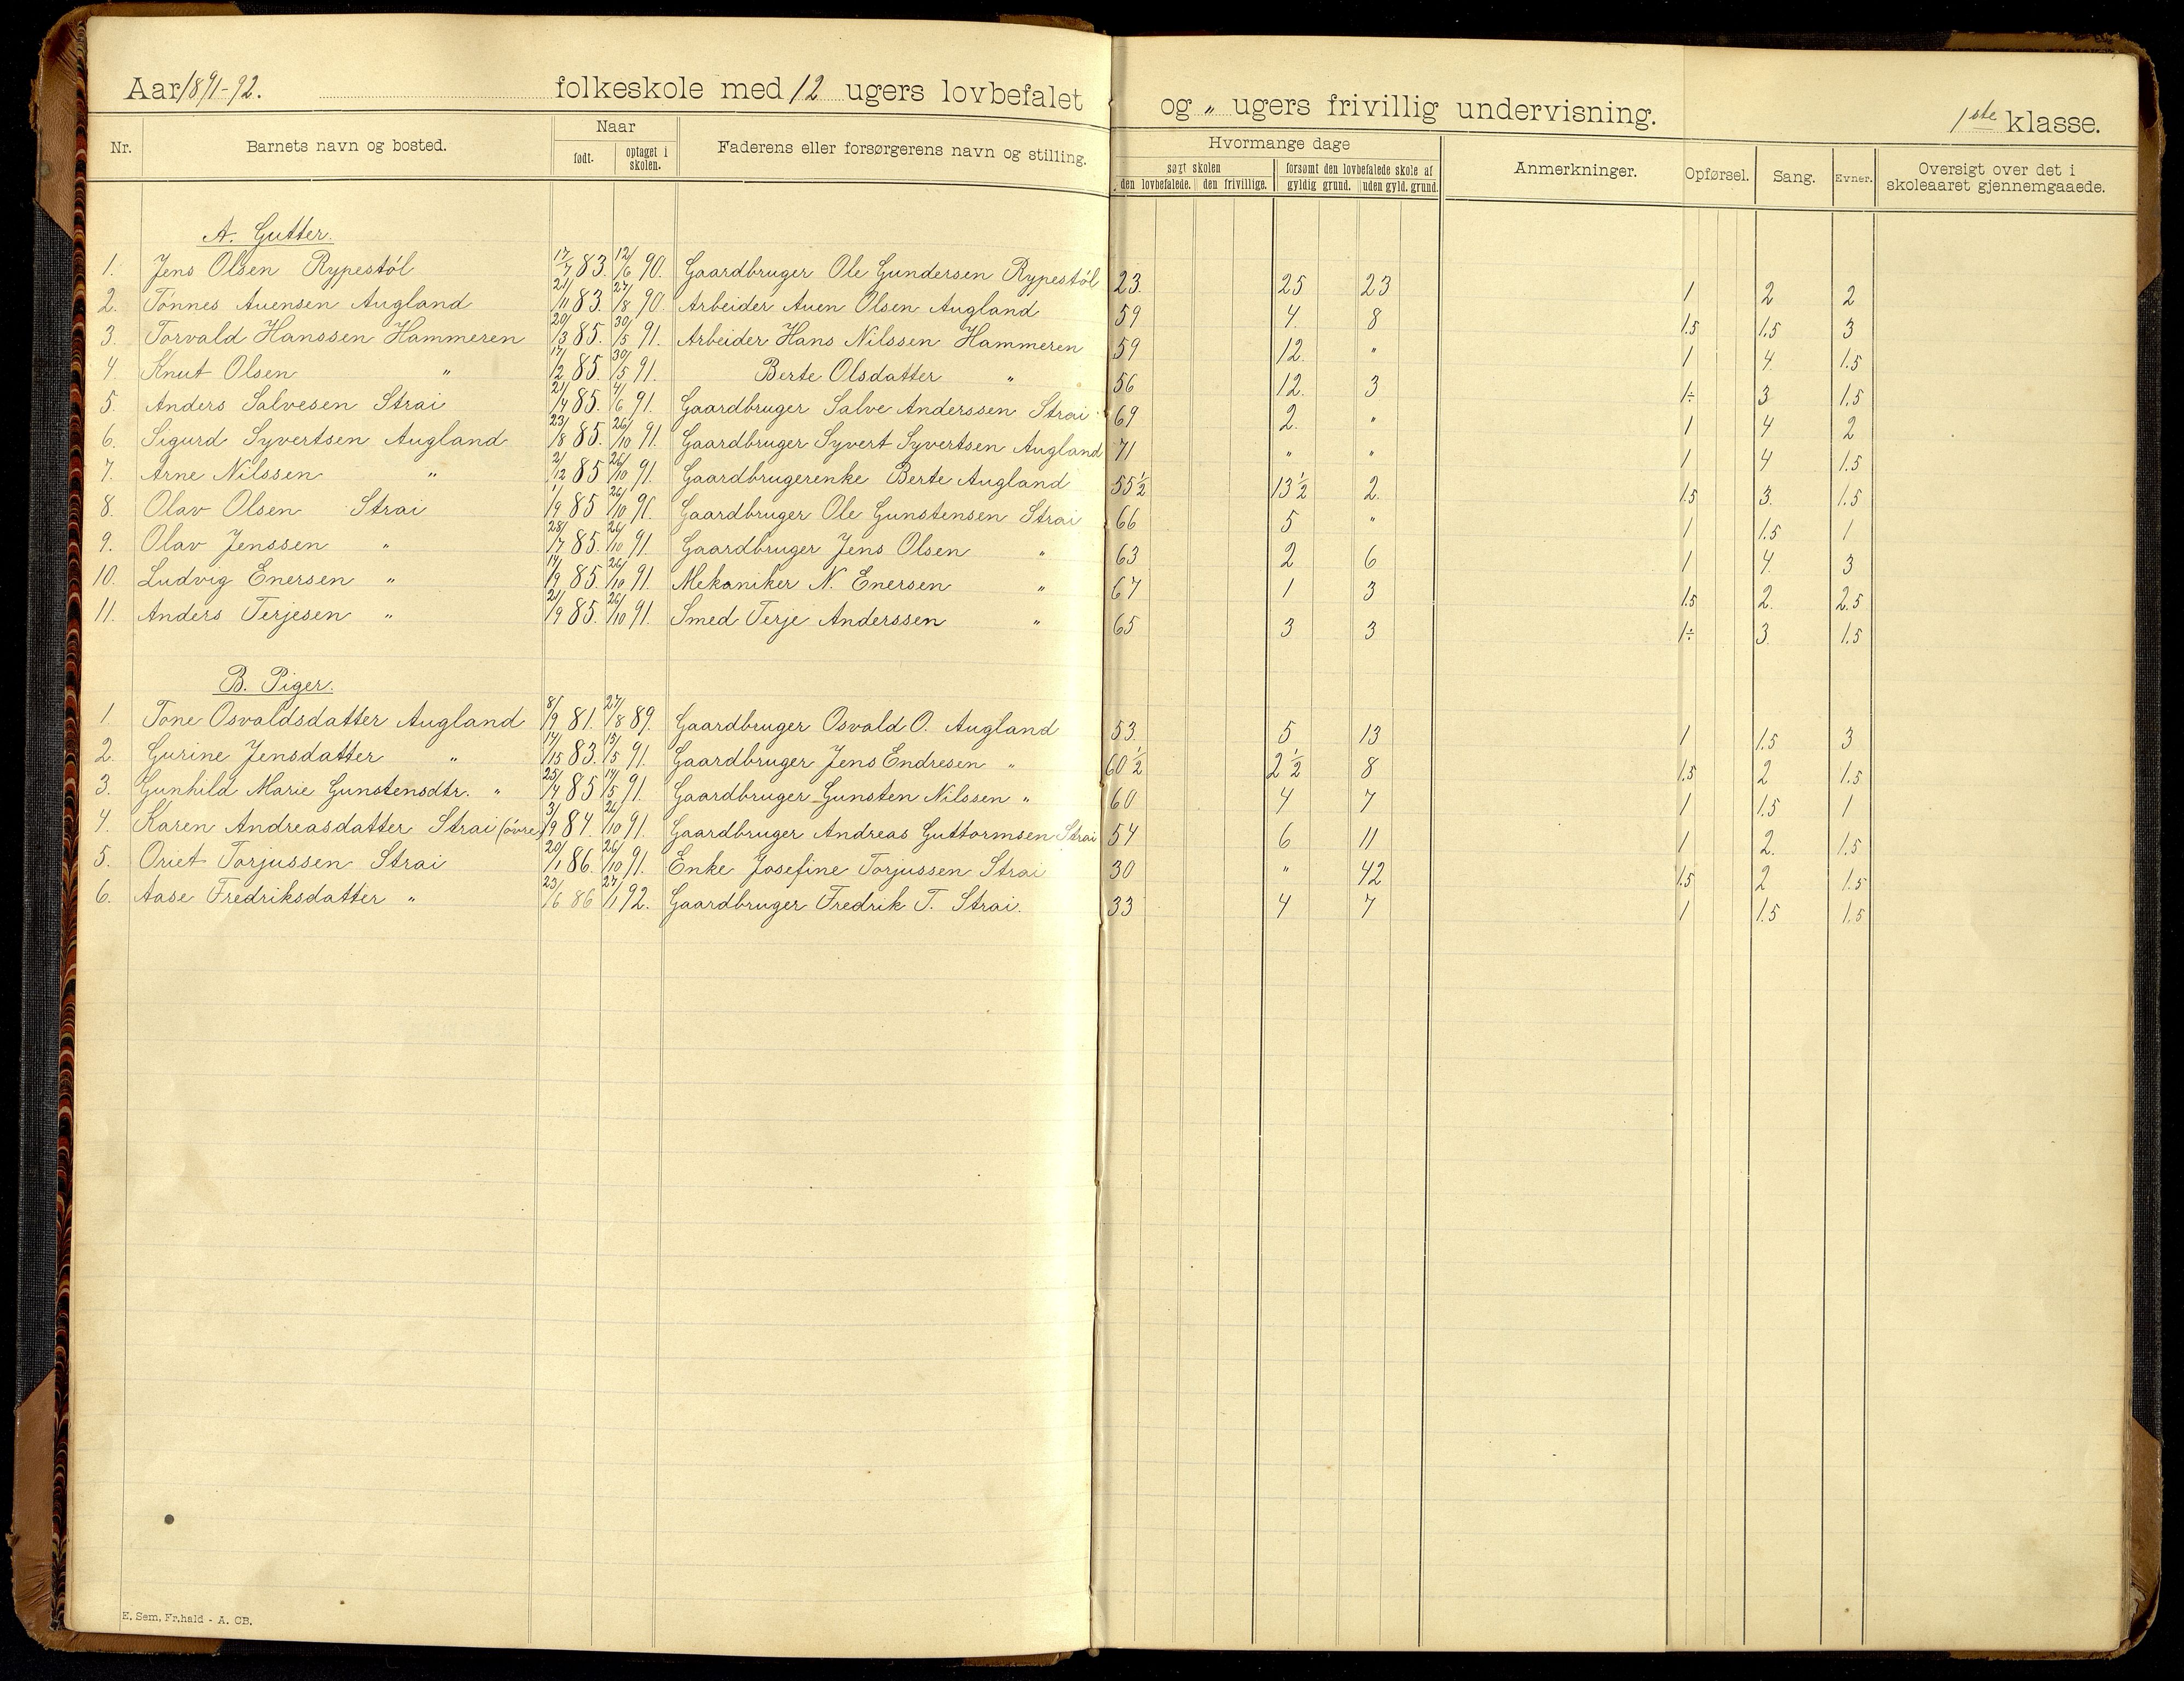 Aar 1891-92. folkeskole med 12 ugers lovbefalet og „ ugers frivillig undervisning. 1ste klasse.
Nr. Barnets navn og bosted. Naar født. optaget i skolen. Faderens eller forsørgerens navn og stilling. Hvormange dage søgt skolen den lovbefalede. den frivillige. forsømt den lovbefalede skole af gyldig grund. uden gyld. grund. Anmerkninger. Opførsel. Sang. Evner. Oversigt over det i skoleaaret gjennemgaaede.
A. Gutter.
1. Jens Olsen Rypestöl 17/7 83. 12/6 90. Gaardbruger Ole Gundersen Rypestöl 23. 25 23 1 2 2
2. Tönnes Auensen Augland 21/11 83. 27/8 90. Arbeider Auen Olsen Augland 59 4. 8 1.5 1.5 3
3. Torvald Hanssen Hammeren 20/3 85. 30/5 91. Arbeider Hans Nilssen Hammeren 59 12. „ 1 4 1.5
4. Knut Olsen „ 17/2 85. 30/5 91. Berte Olsdatter „ 56 12. 3 1÷ 3 1.5
5. Anders Salvesen Strai 21/4 85. 4/6 91. Gaardbruger Salve Anderssen Strai 69 2. „ 1 4 2
6. Sigurd Syvertsen Augland 23/8 85. 26/10 91. Gaardbruger Syvert Syvertsen Augland 71 „ „ 1 4 1.5
7. Arne Nilssen „ 2/12 85 26/10 91. Gaardbrugerenke Berte Augland 55½ 13½ 2. 1.5 3. 1.5
8. Olav Olsen Strai 1/9 85 26/10 91. Gaardbruger Ole Gunstensen Strai 66 5 „ 1 1.5 1
9. Olav Jenssen „ 28/7 85. 26/10 91. Gaardbruger Jens Olsen „ 63 2 6 1 4. 3
10. Ludvig Enersen „ 14/9 85. 26/10 91. Mekaniker N. Enersen „ 67 1 3 1.5 2. 2.5
11. Anders Terjesen „ 21/9 85. 26/10 91. Smed Terje Anderssen „ 65 3 3 1÷ 3. 1.5
B. Piger.
1. Tone Osvaldsdatter Augland 8/9 81. 27/8 89. Gaardbruger Osvald O. Augland 53. 5 13 1 1.5 3
2. Gurine Jensdatter „ 83. 15/5 91. Gaardbruger Jens Endresen „ 60½ 2½ 8 1.5 2 1.5
3. Gunhild Marie Gunstensdtr. „ 25/4 85 14/5 91. Gaardbruger Gunsten Nilssen „ 60 4 7 1 1.5 1
4. Karen Andreasdatter Strai (övre) 3/9 84. 26/10 91. Gaardbruger Andreas Guttormsen Strai 54 6 11 1 2. 1.5
5. Oriet Torjussen Strai 20/1 86. 26/10 91. Enke Josefine Torjussen Strai 30 „ 42 1.5 2 1.5
6. Aase Fredriksdatter „ 23/6 86 27/1 92. Gaardbruger Fredrik T. Strai. 33 4 7 1 1.5 1.5
E. Sem, Fr.hald - A. CB.